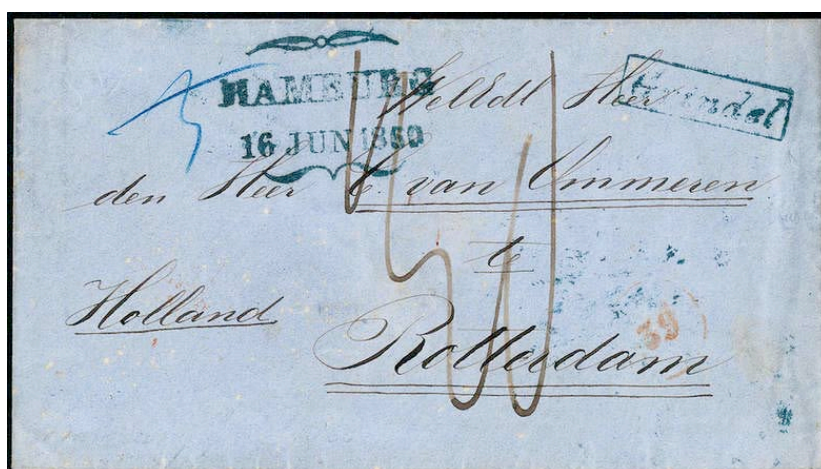 HAMBURG
16 JUN 1850
Grindel
WelEdl Heer
den Heer C. van Ommeren
te
Holland
Rotterdam
39